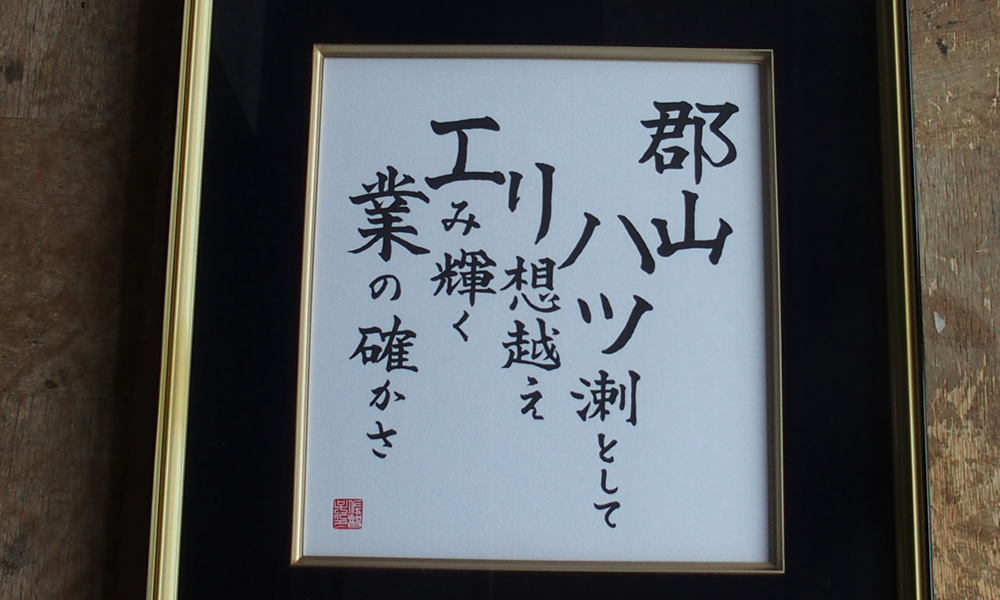 郡山
ハツ溂として
リ想越え
工み輝く
業の確かさ